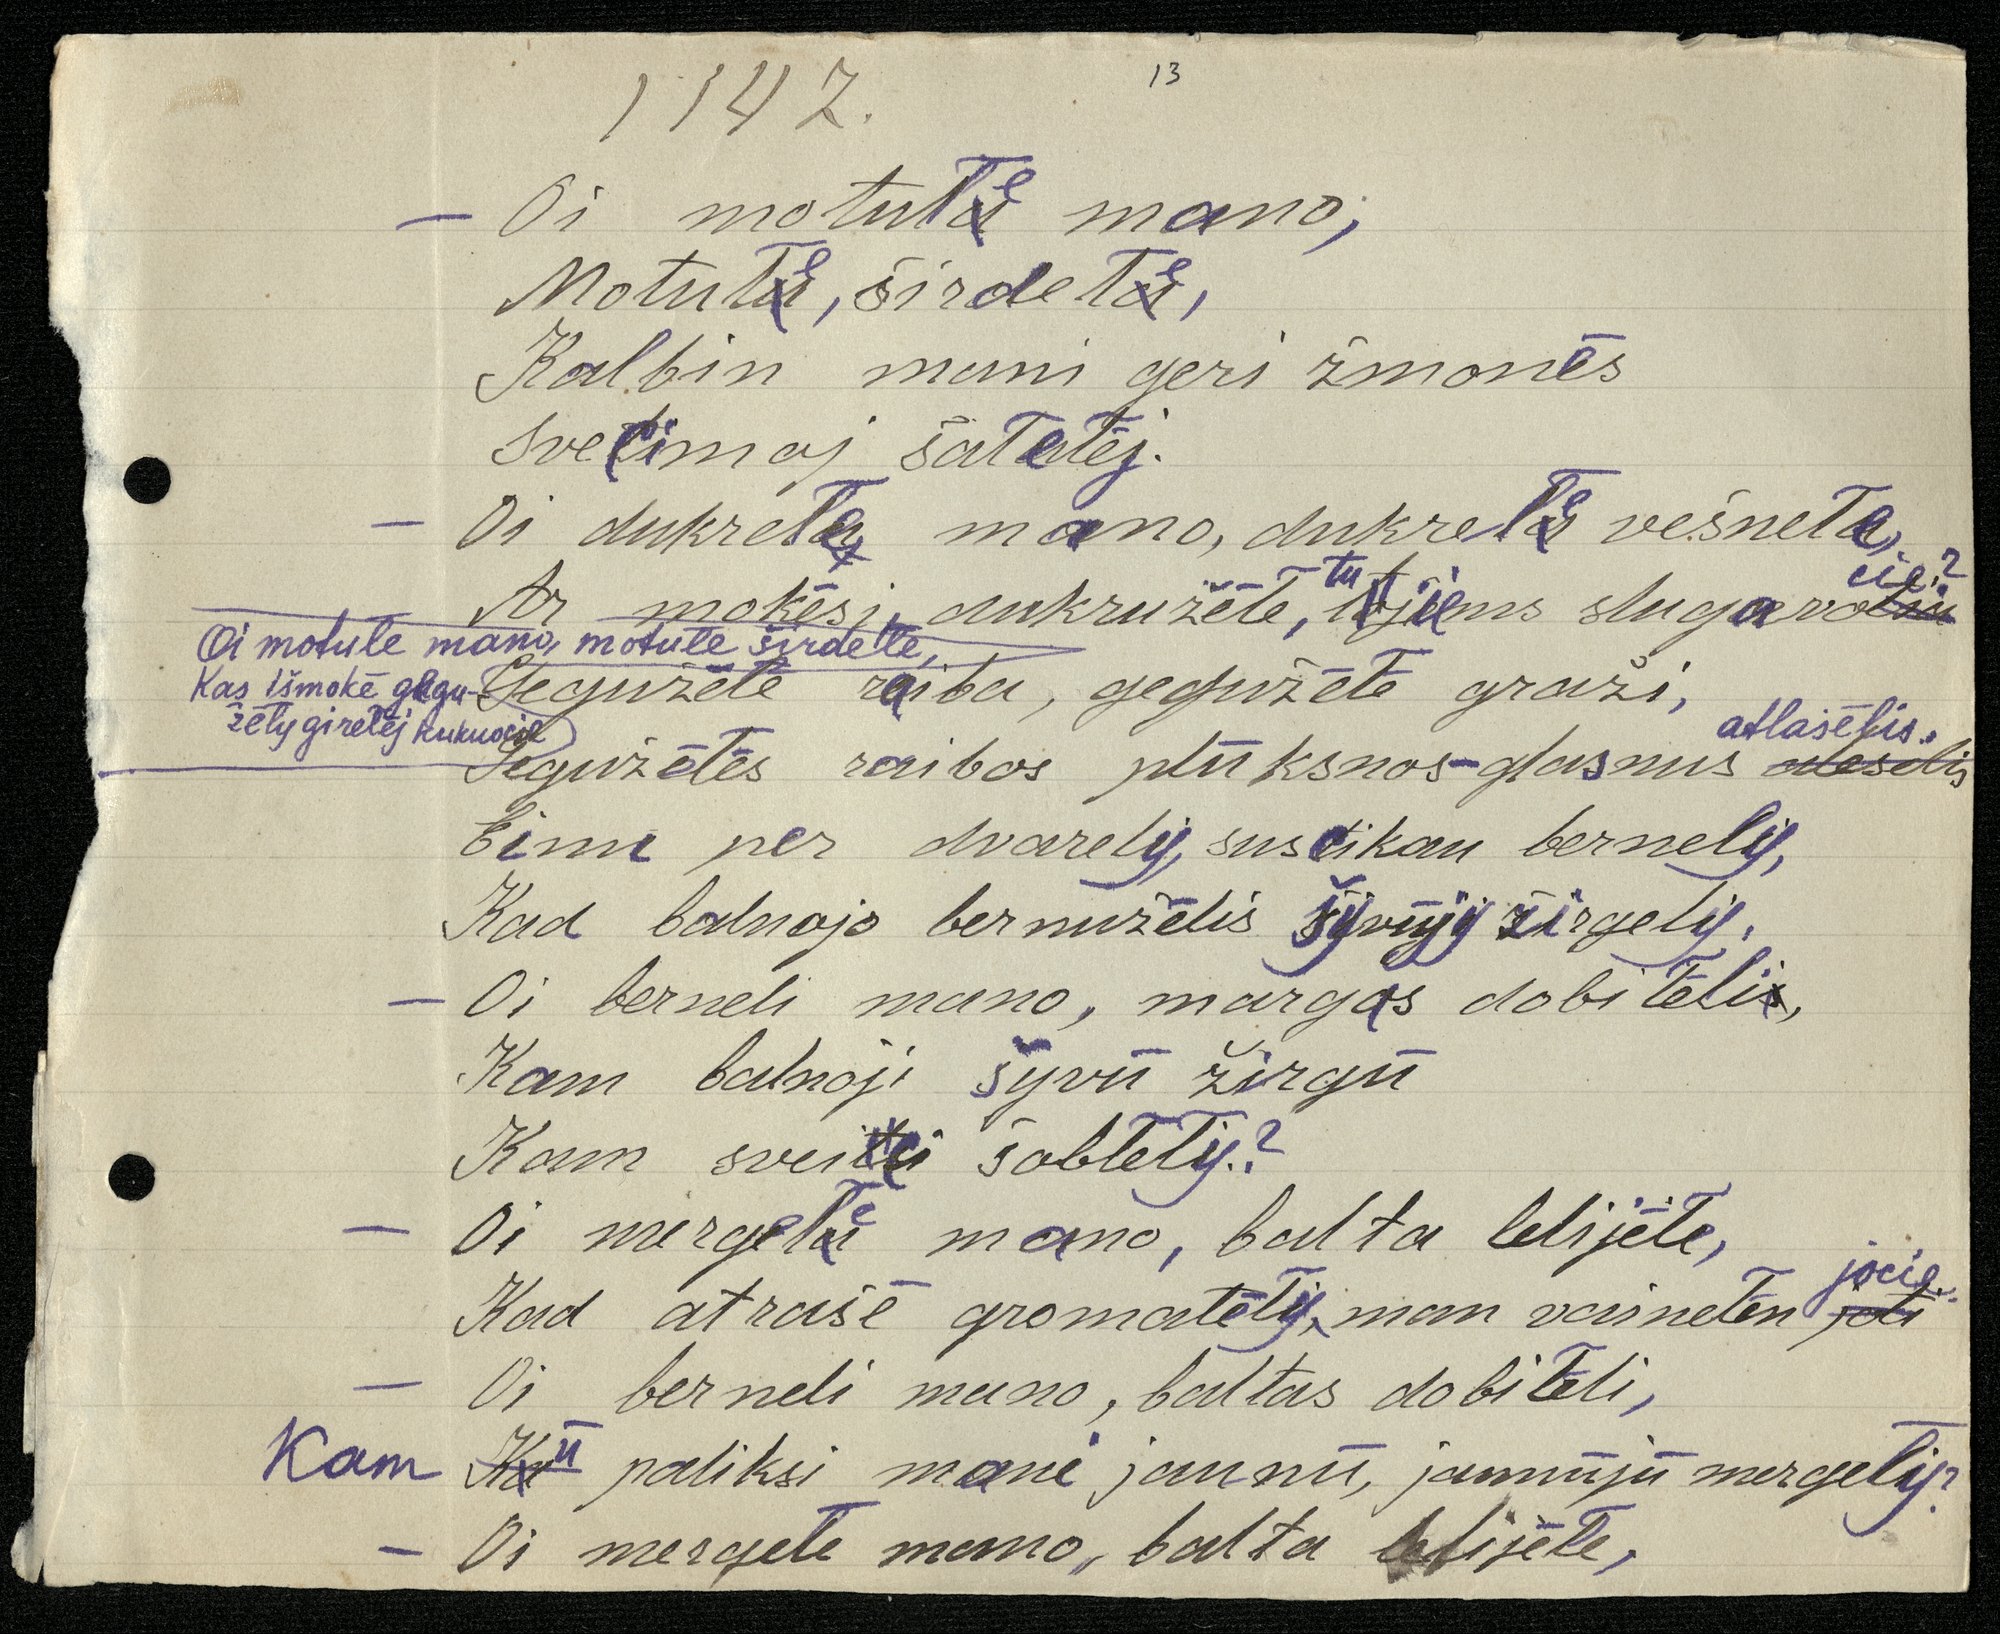 1142.
13
– Oi motute mano,
Motute, širdete,
Kalbin mani geri žmonės
Svecimoj šatetėj.
– Oi dukrete mano, dukrete vešneta,
Ar mokėsi, dukružėte, tu jiems slugavocie?
Oi motute mano, motute širdete,
Kas išmokė gegu-
žėty giretėj kukuocie
Gegužėtė raiba, gegužėtė graži,
Gegužėtės raibos plūksnos-glasnus atlasėlis.
Eimu per dvarely, susitikau bernely,
Kad balnojo bernužėlis šyvūjy žirgely.
– Oi berneli mano, margas dobitėli,
Kam balnoji šyvū žirgū
Kam sveiti šobtėty?
– Oi mergete mano, balta lelijėte,
Kad atrašė gromatėty, man vaineten jocie.
– Oi berneli mano, baltas dobitėli,
Kam paliksi mani jaunū, jaunūjū mergety?
– Oi mergete mano, balta lelijėte,